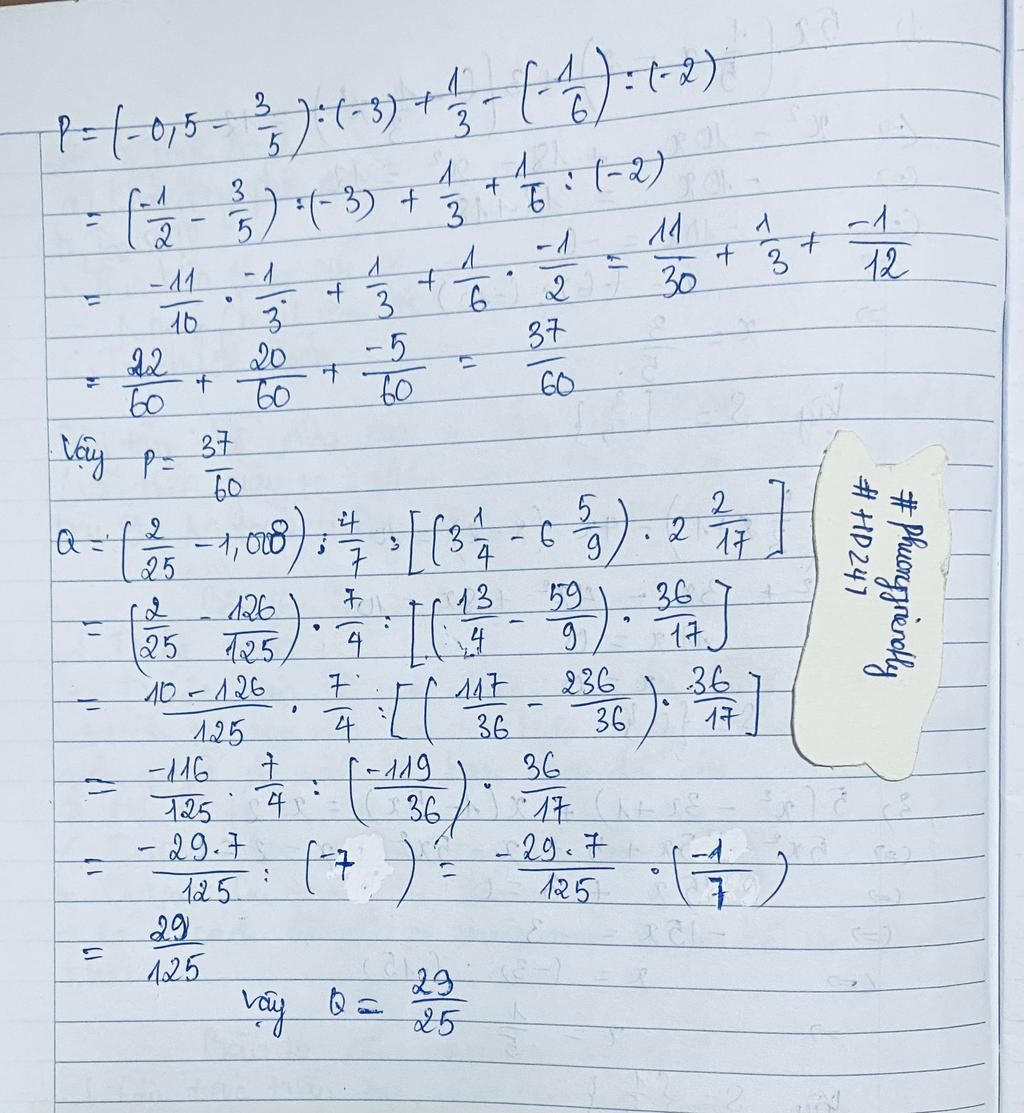 P = (-0,5 - 3/5) : (-3) + 1/3 - (-1/6) : (-2)
= (-1/2 - 3/5) : (-3) + 1/3 + 1/6 : (-2)
= -11/10 . -1/3 + 1/3 + 1/6 . -1/2 = 11/30 + 1/3 + -1/12
= 22/60 + 20/60 + -5/60 = 37/60
Vậy P = 37/60
Q = (2/25 - 1,008) : 4/7 : [(3 1/4 - 6 5/9) . 2 2/17]
= (2/25 - 126/125) . 7/4 : [(13/4 - 59/9) . 36/17]
= 10 - 126/125 . 7/4 : [(117/36 - 236/36) . 36/17]
= -116/125 . 7/4 : (-119/36) . 36/17
= -29.7/125 : (-7) = -29.7/125 . (-1/7)
= 29/125
Vậy Q = 29/25
#phuongfriendly
#HD247